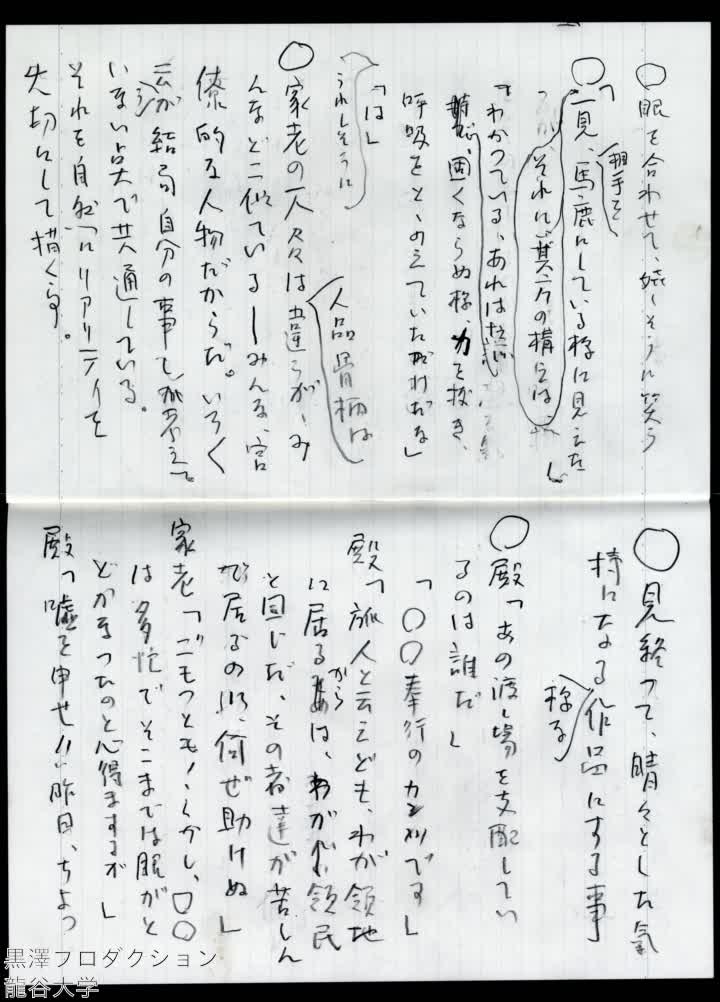 ○眼を合わせて、嬉しそうに笑う
○「一見、相手を馬鹿にしている様に見えた
が、それに其の方の構えは、
「わかつている、あれは
固くならぬ様、力を抜き、
呼吸をとゝのえていた丈けだな」
「はし
うれしそうに
○家老の一人々々は人品骨柄は違うが、み
んなどこか似ている―みんな、官
僚的な人物だからだ。いろ〱
云うが結局自分の事しか考えて
いない点で共通している。
それを自然にリアリティを
大切にして描く事。
○見終つて、晴々とした気
持になる様な作品にする事
○殿「あの渡し場を支配してい
るのは誰だ」
「○○奉行の
殿「旅人と云えども、わが領地
に居るからは、わが領民
と同じだ、その者達が苦しん
で居るのに、何ぜ助けぬ」
家老「ごもつとも、しかし、□□
は多忙でそこまでは眼がと
どかなつたのと心得まするが」
殿「嘘を申せ!!昨日、ちよつ
黒澤プロダクション
龍谷大学